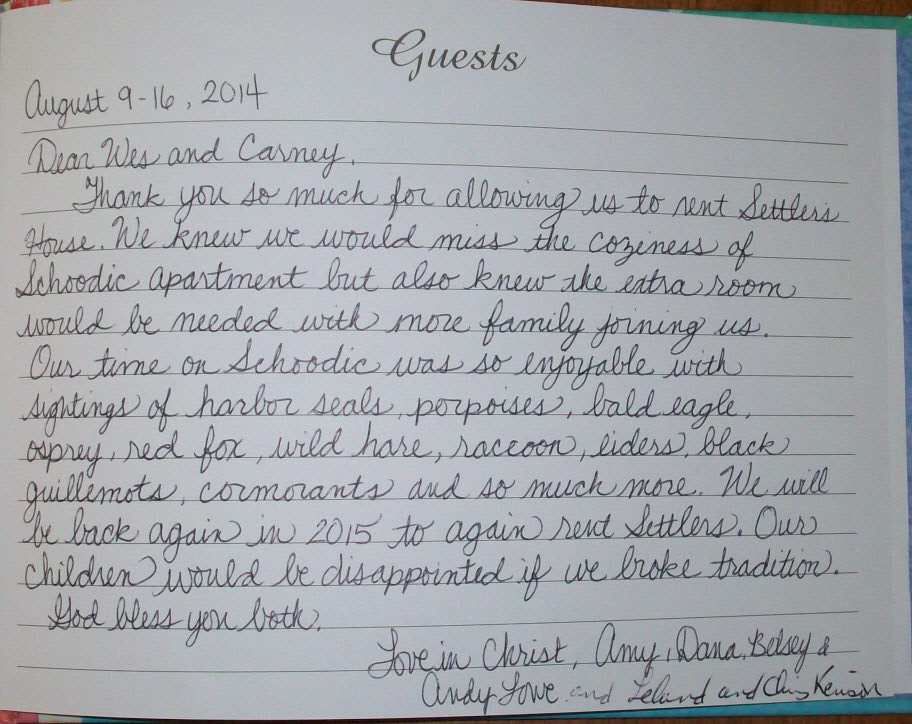 Guests
August 9-16, 2014
Dear Wes and Carney,
Thank you so much for allowing us to rent Settler's
House. We knew we would miss the coziness of
Schoodic apartment but also knew the extra room
would be needed with more family joining us.
Our time on Schoodic was so enjoyable with
sightings of harbor seals, porpoises, bald eagle,
osprey, red fox, wild hare, raccoon, eiders, black
guillemots, cormorants and so much more. We will
be back again in 2015 to again rent Settlers. Our
children would be disappointed if we broke tradition.
God bless you both.
Love in Christ, Amy, Dana, Betsey &
Andy Lowe and Leland and Chris Kenison